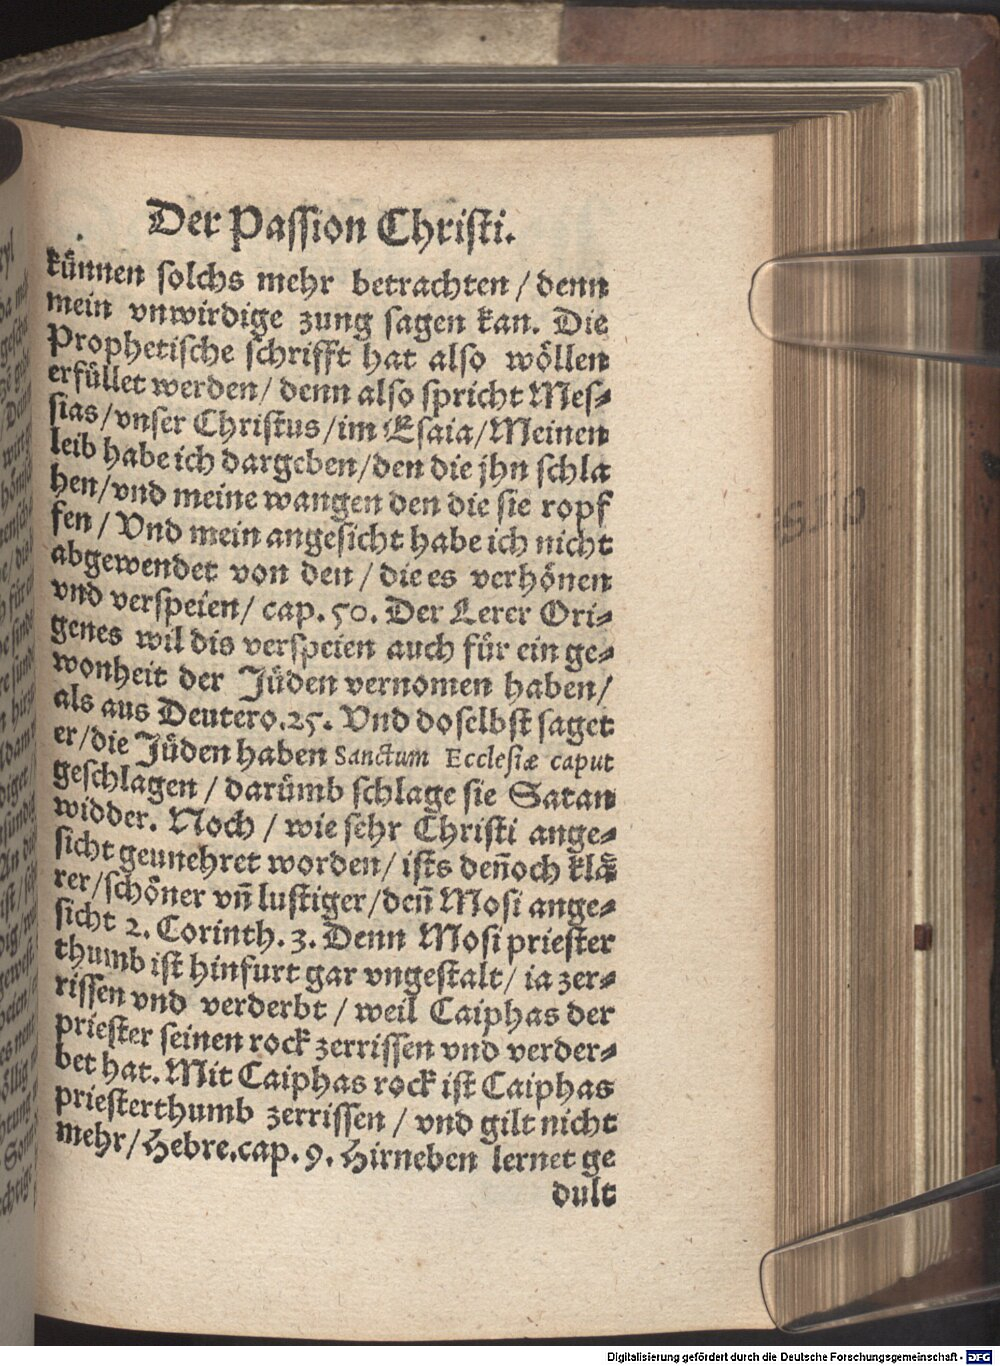 Der Passion Christi.
künnen solchs mehr betrachten / denn
mein vnwirdige zung sagen kan. Die
Prophetische schrifft hat also wöllen
erfüllet werden / denn also spricht Mes⸗
sias / vnser Christus / im Esaia / Meinen
leib habe ich dargeben / den die jhn schla
hen / vnd meine wangen den die sie ropf
fen / Vnd mein angesicht habe ich nicht
abgewendet von den / die es verhönen
vnd verspeien / cap. 50. Der Lerer Ori⸗
genes wil dis verspeien auch für ein ge⸗
wonheit der Jüden vernomen haben /
als aus Deutero. 25. Vnd doselbst saget
er / die Jüden haben Sanctum Ecclesiæ caput
geschlagen / darümb schlage sie Satan
widder. Noch / wie sehr Christi ange⸗
sicht geunehret worden / ists deñoch klä
rer / schöner vñ lustiger / deñ Mosi ange⸗
sicht 2. Corinth. 3. Denn Mosi priester
thumb ist hinfurt gar vngestalt / ia zer⸗
rissen vnd verderbt / weil Caiphas der
priester seinen rock zerrissen vnd verder⸗
bet hat. Mit Caiphas rock ist Caiphas
priesterthumb zerrissen / vnd gilt nicht
mehr / Hebre. cap. 9. Hirneben lernet ge
dult
Digitalisierung gefördert durch die Deutsche Forschungsgemeinschaft - DFG